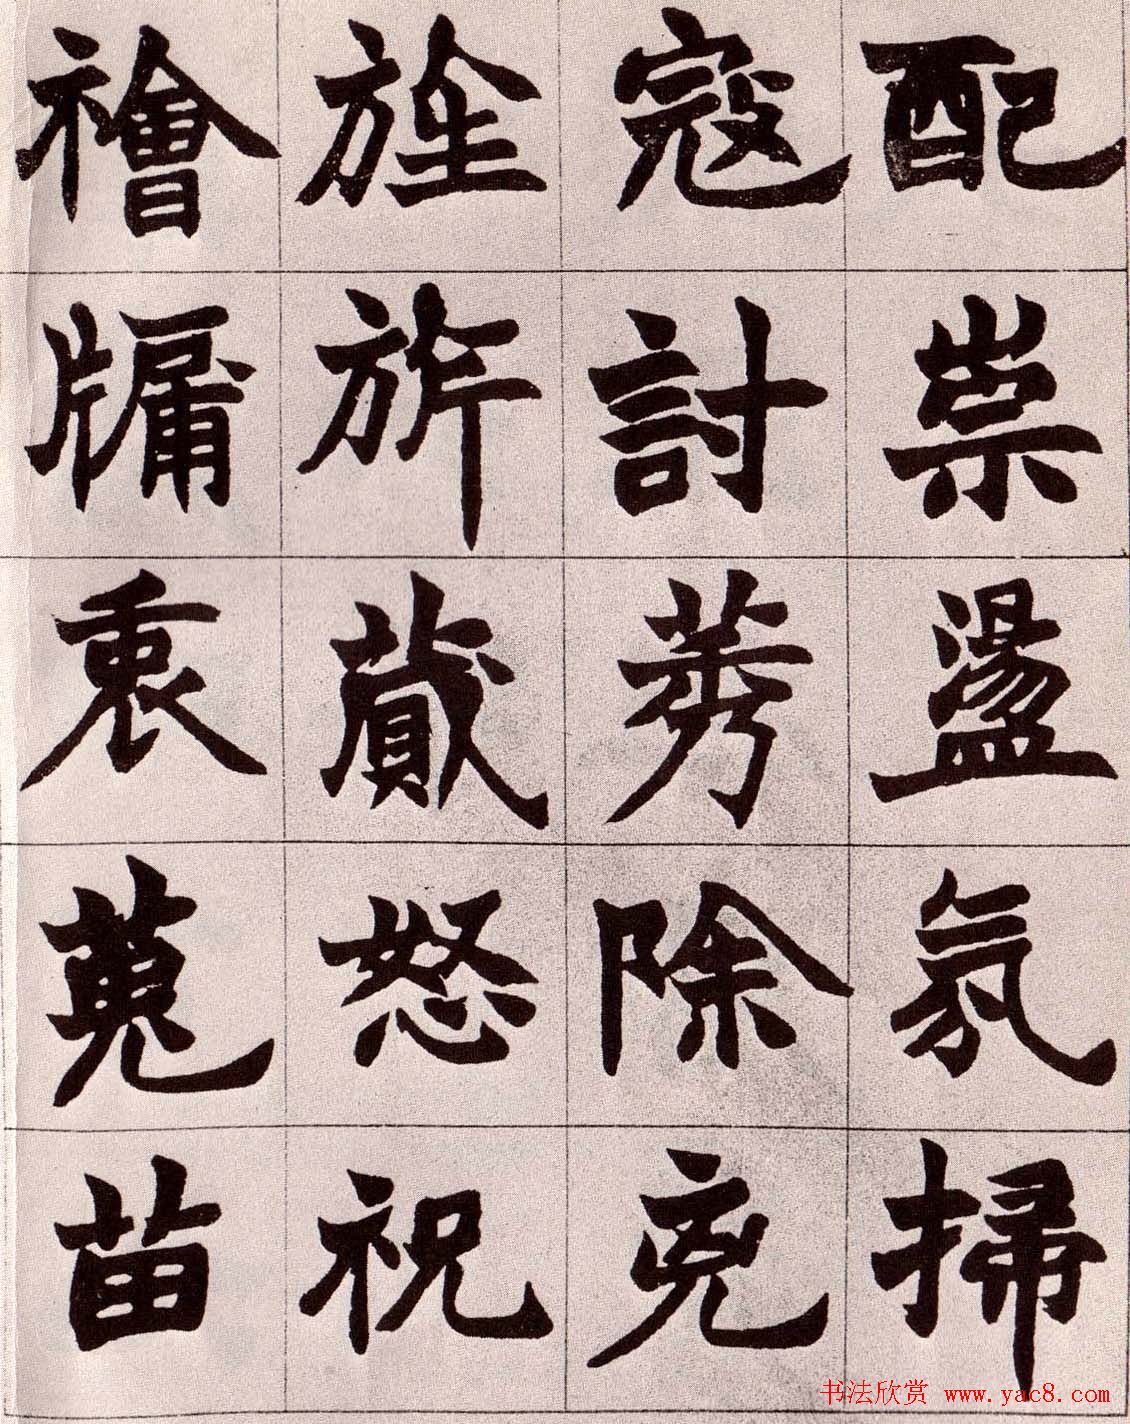 配祟盪氛掃
寇討莠除兇
旌旂蕆怒祝
禬牖衷蒐苗
书法欣赏 www.yac8.com